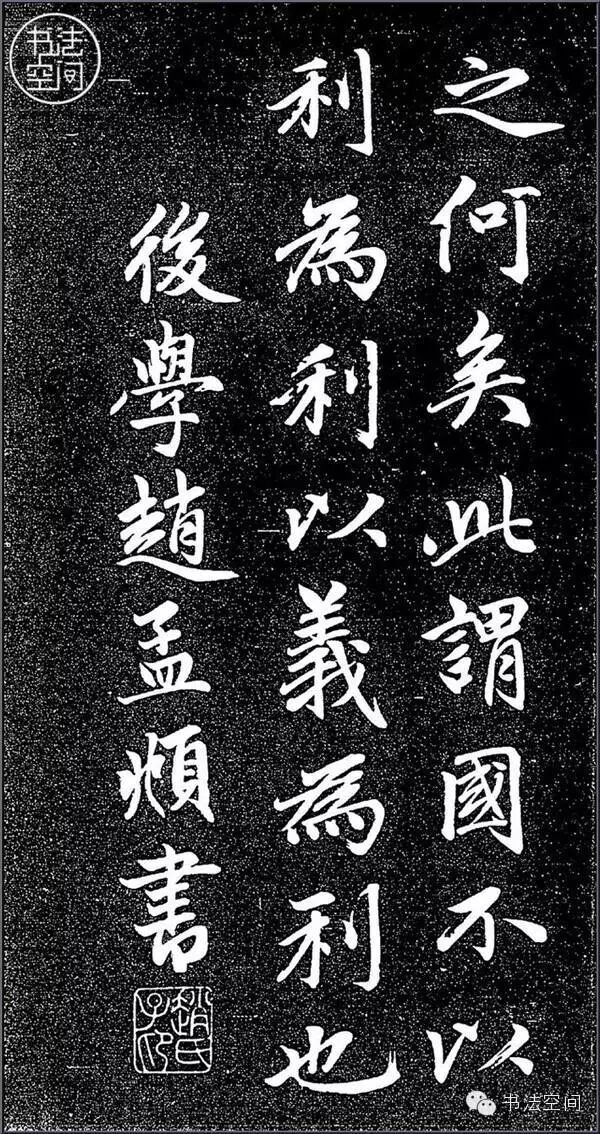 之何矣此謂國不以
利為利以義為利也
後學趙孟頫書
趙氏子昂
书法空间
书法空间